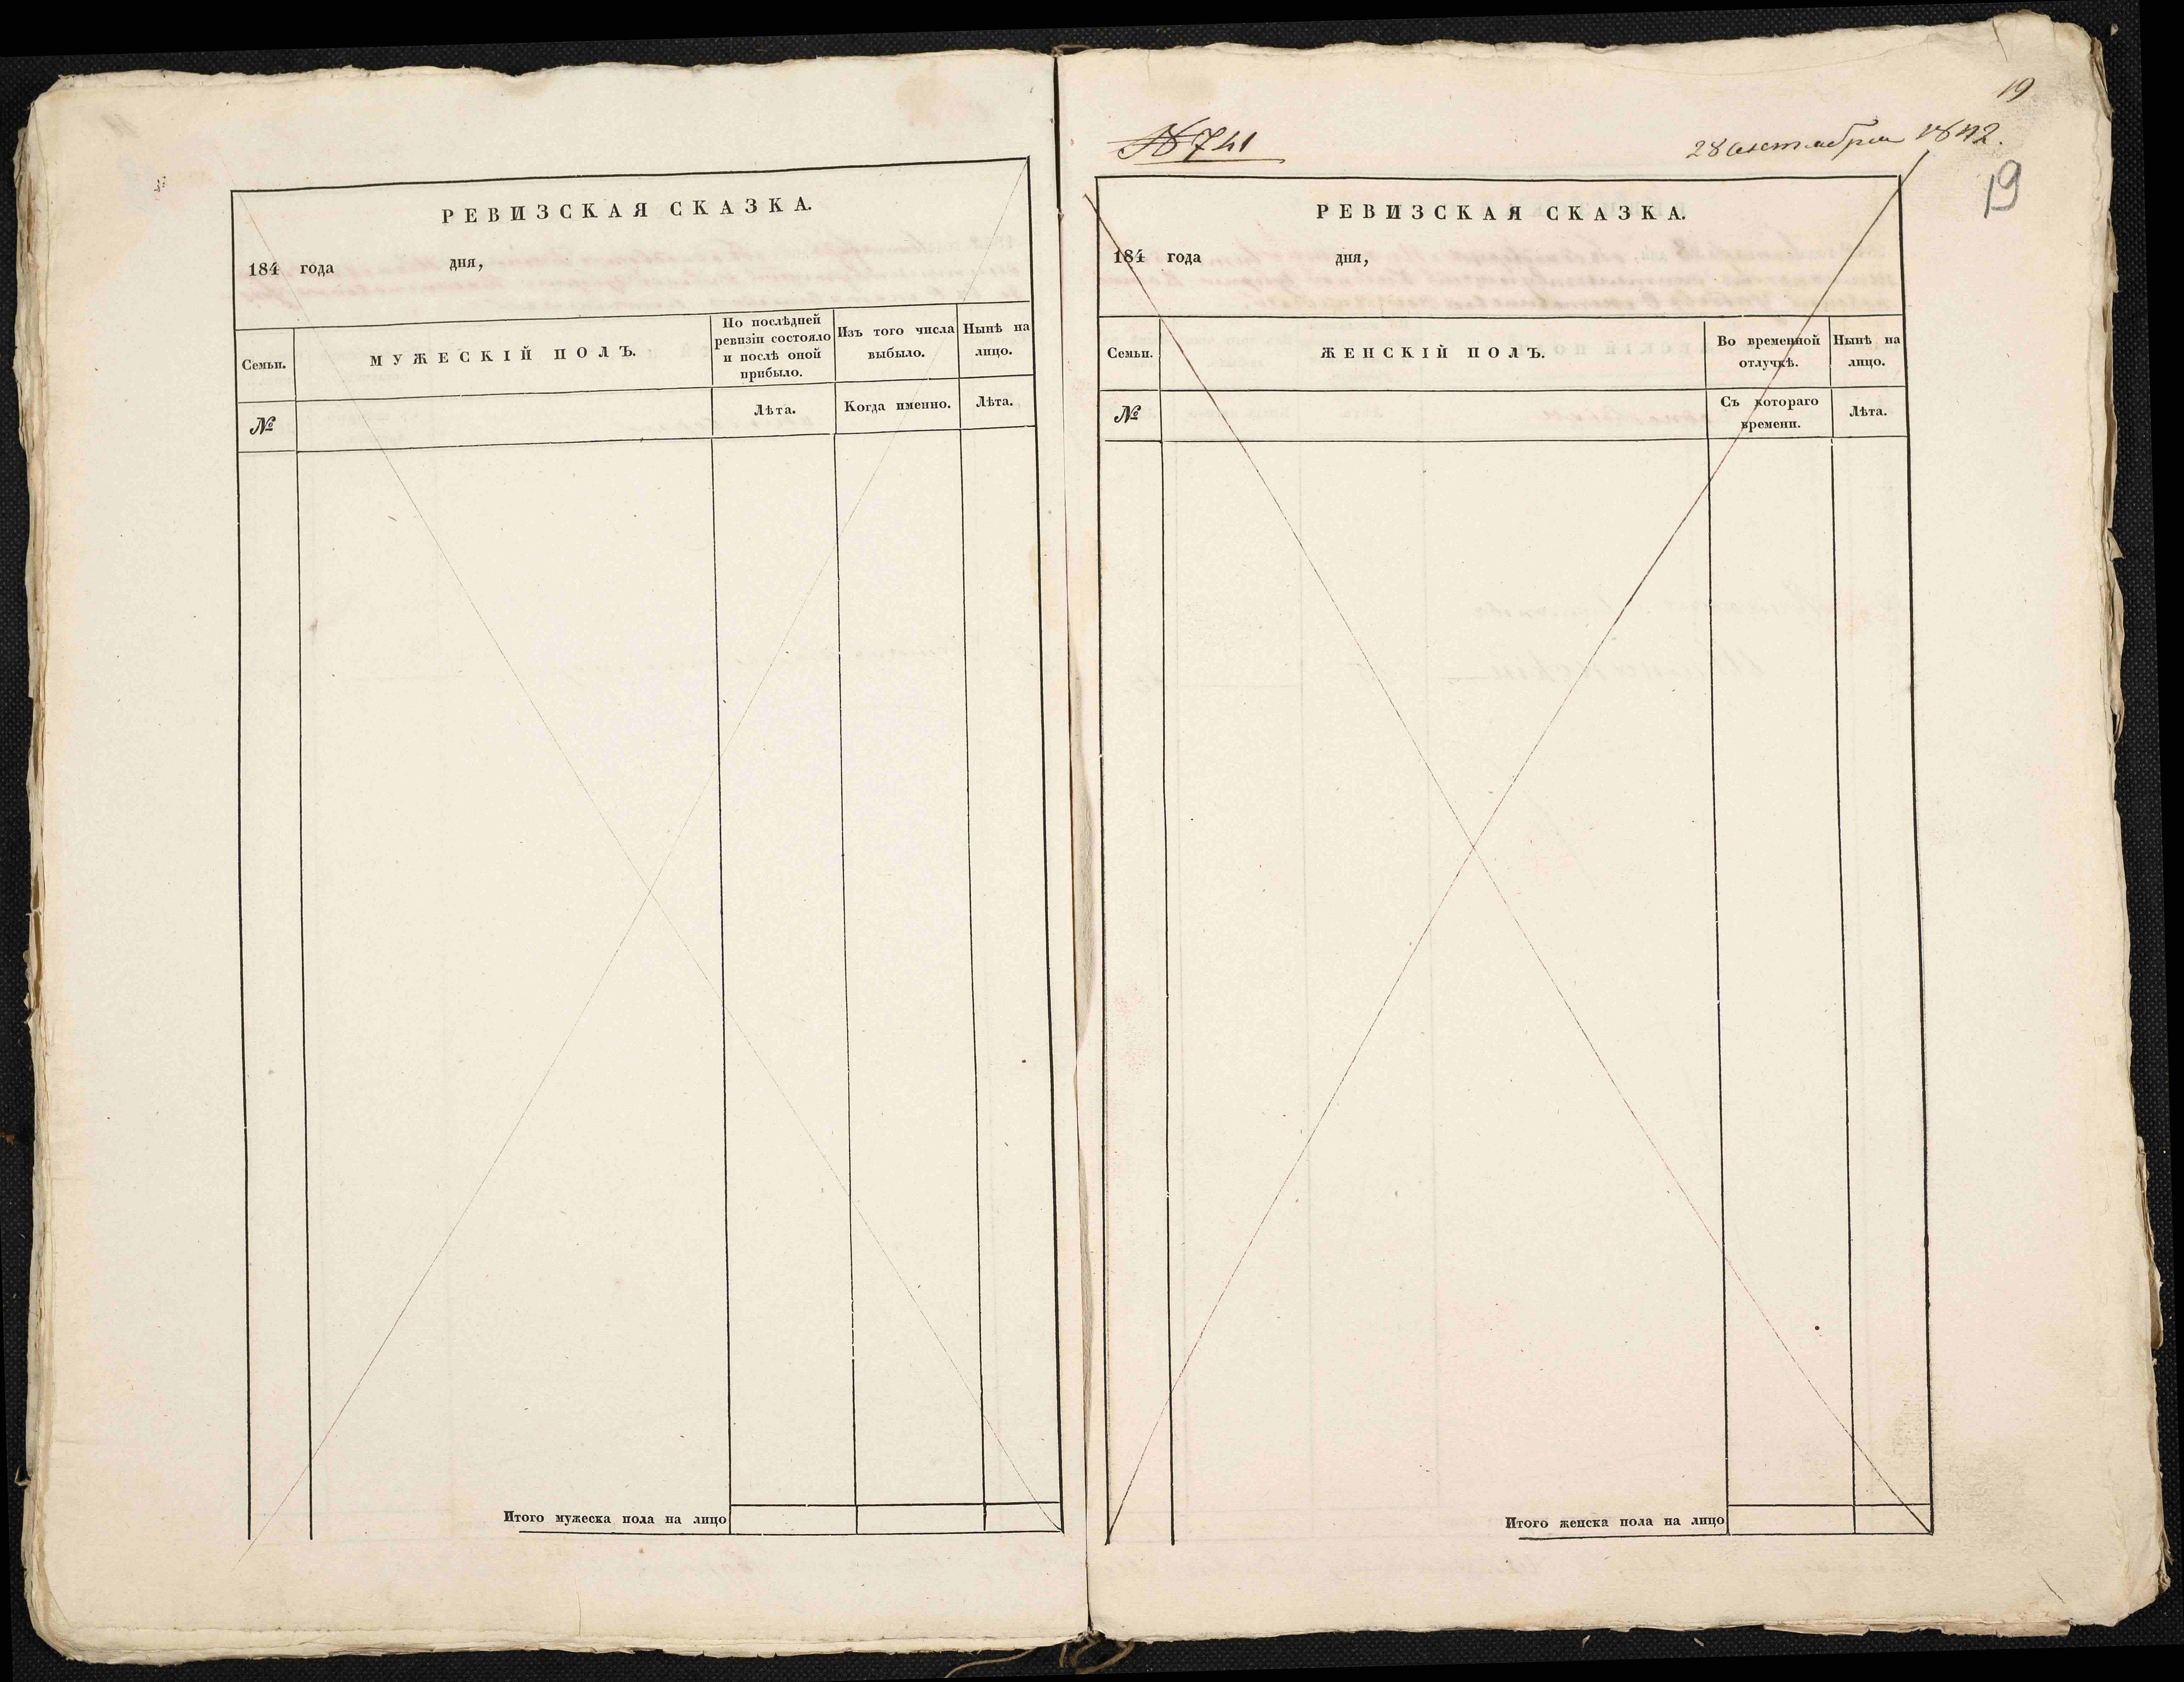 РЕВИЗСКАЯ СКАЗКА.
184 года дня,
Семьи.
МУЖЕСКІЙ ПОЛЪ.
По послѣдней
ревизіи состояло
и послѣ оной
прибыло.
Изъ того числа
выбыло.
Нынѣ на
лицо.
№
Лѣта.
Когда именно.
Лѣта.
Итого мужеска пола на лицо
19
№ 741
28 Сентября 1842.
19
РЕВИЗСКАЯ СКАЗКА.
184 года дня,
Семьи.
ЖЕНСКІЙ ПОЛЪ.
Во временной
отлучкѣ.
Нынѣ на
лицо.
№
Съ котораго
времени.
Лѣта.
Итого женска пола на лицо